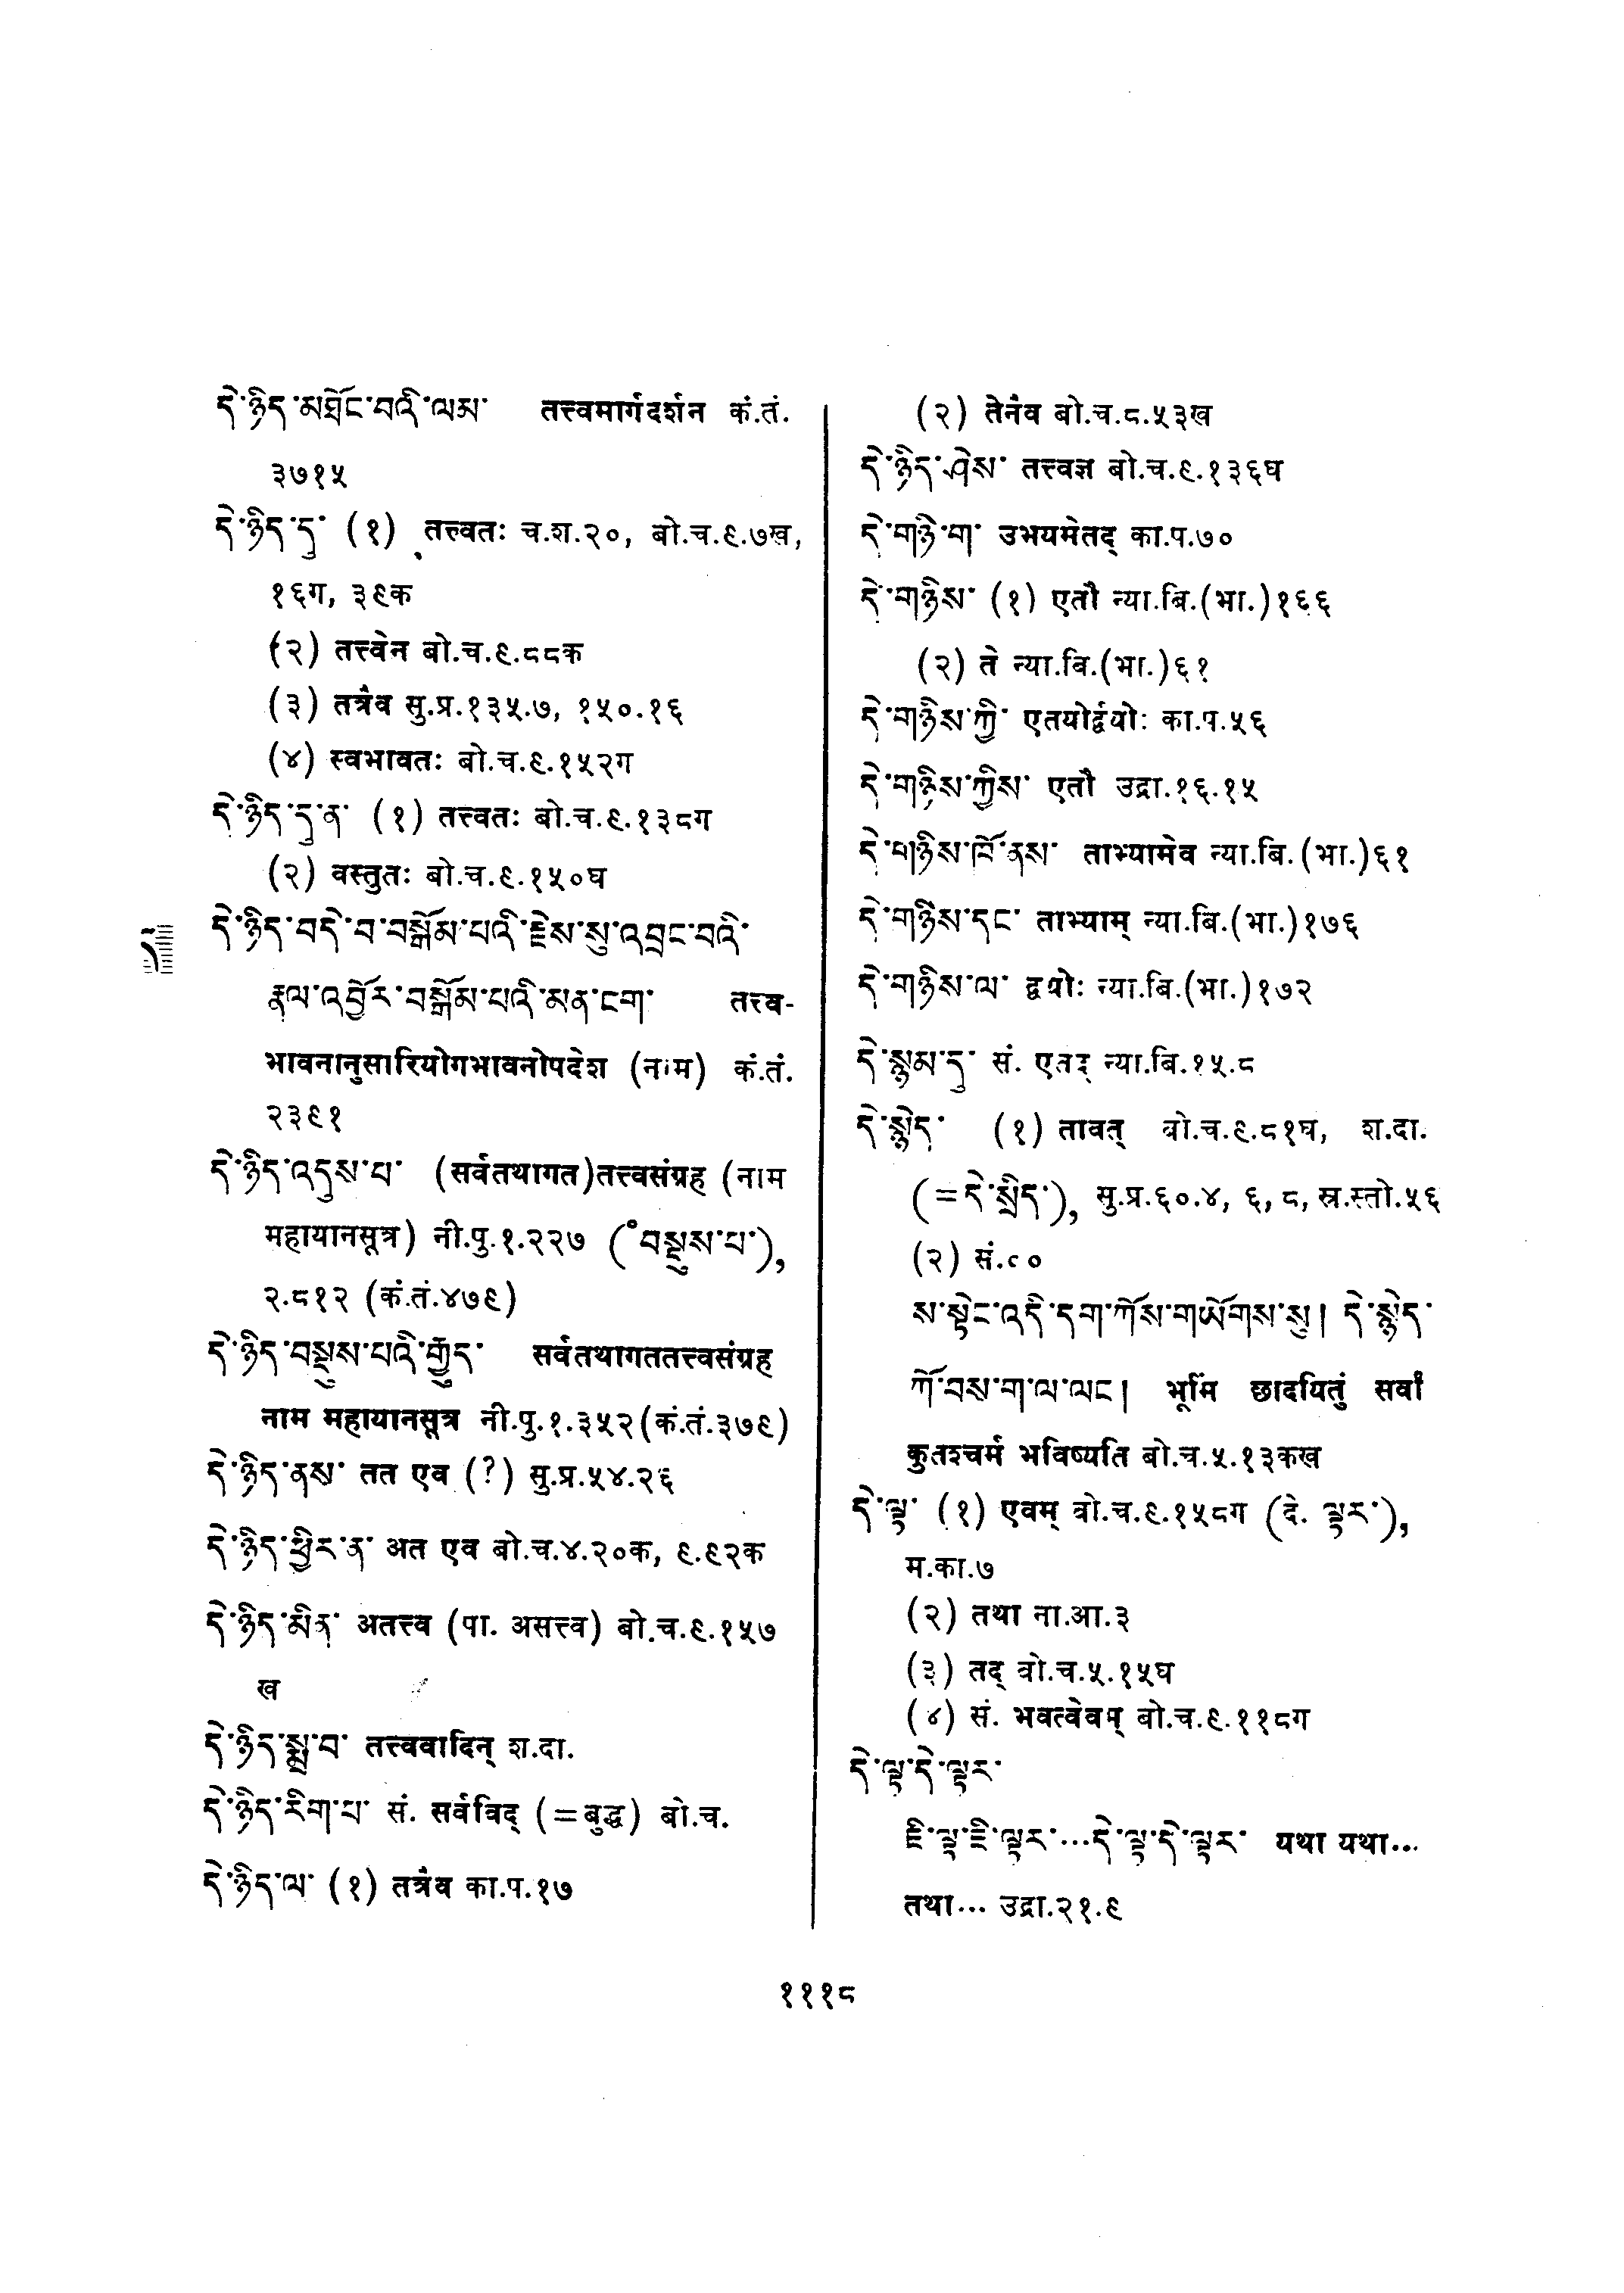 དེ་ཉིད་མཐོང་བའི་ལམ་ तत्त्वमार्गदर्शन कं.तं.
३७१५
དེ་ཉིད་དུ་ (१) तत्त्वतः च.श.२०, बो.च.९.७ख,
१६ग, ३९क
(२) तत्त्वेन बो.च.९.८८क
(३) तत्रैव सु.प्र.१३५.७, १५०.१६
(४) स्वभावतः बो.च.९.१५२ग
དེ་ཉིད་དུ་ན་ (१) तत्त्वतः बो.च.९.१३८ग
(२) वस्तुतः बो.च.९.१५०घ
དེ་ཉིད་བདེ་བ་བསྒོམ་པའི་རྗེས་སུ་འབྲང་བའི་
རྣལ་འབྱོར་བསྒོམ་པའི་མན་ངག་ तत्त्व-
भावनानुसारियोगभावनोपदेश (नाम) कं.तं.
२३९१
དེ་ཉིད་འདུས་པ་ (सर्वतथागत)तत्त्वसंग्रह (नाम
महायानसूत्र) नी.पु.१.२२७ (°བསྡུས་པ་),
२.८१२ (कं.तं.४७९)
དེ་ཉིད་བསྡུས་པའི་རྒྱུད་ सर्वतथागततत्त्वसंग्रह
नाम महायानसूत्र नी.पु.१.३५२(कं.तं.३७९)
དེ་ཉིད་ནས་ तत एव (?) सु.प्र.५४.२६
དེ་ཉིད་ཕྱིར་ན་ अत एव बो.च.४.२०क, ९.९२क
དེ་ཉིད་མིན་ अतत्त्व (पा. असत्त्व) बो.च.९.१५७
ख
དེ་ཉིད་སྨྲ་བ་ तत्त्ववादिन् श.दा.
དེ་ཉིད་རིག་པ་ सं. सर्वविद् (=बुद्ध) बो.च.
དེ་ཉིད་ལ་ (१) तत्रैव का.प.१७
(२) तेनैव बो.च.८.५३ख
དེ་ཉིད་ཤེས་ तत्त्वज्ञ बो.च.९.१३६घ
དེ་གཉི་ག་ उभयमेतद् का.प.७०
དེ་གཉིས་ (१) एतौ न्या.बि.(भा.)१६६
(२) ते न्या.बि.(भा.)६१
དེ་གཉིས་ཀྱི་ एतयोर्द्वयोः का.प.५६
དེ་གཉིས་ཀྱིས་ एतौ उद्रा.१६.१५
དེ་གཉིས་ཁོ་ནས་ ताभ्यामेव न्या.बि.(भा.)६१
དེ་གཉིས་དང་ ताभ्याम् न्या.बि.(भा.)१७६
དེ་གཉིས་ལ་ द्वयोः न्या.बि.(भा.)१७२
དེ་སྙམ་དུ་ सं. एतद् न्या.बि.१५.८
དེ་སྙེད་ (१) तावत् बो.च.९.८१घ, श.दा.
(=དེ་སྲིད་), सु.प्र.६०.४, ६, ८, स्र.स्तो.५६
(२) सं.८०
ས་སྟེང་འདི་དག་ཀོས་གཡོགས་སུ། དེ་སྙེད་
ཀོ་བས་ག་ལ་ལང། भूमिं छादयितुं सर्वां
कुतश्चर्म भविष्यति बो.च.५.१३कख
དེ་ལྟ་ (१) एवम् बो.च.९.१५८ग (दे. ལྟར་),
म.का.७
(२) तथा ना.आ.३
(३) तद् बो.च.५.१५घ
(४) सं. भवत्वेवम् बो.च.९.११८ग
དེ་ལྟ་དེ་ལྟར་
ཇི་ལྟ་ཇི་ལྟར་...དེ་ལྟ་དེ་ལྟར་ यथा यथा...
तथा... उद्रा.२१.९
དེ
१११८